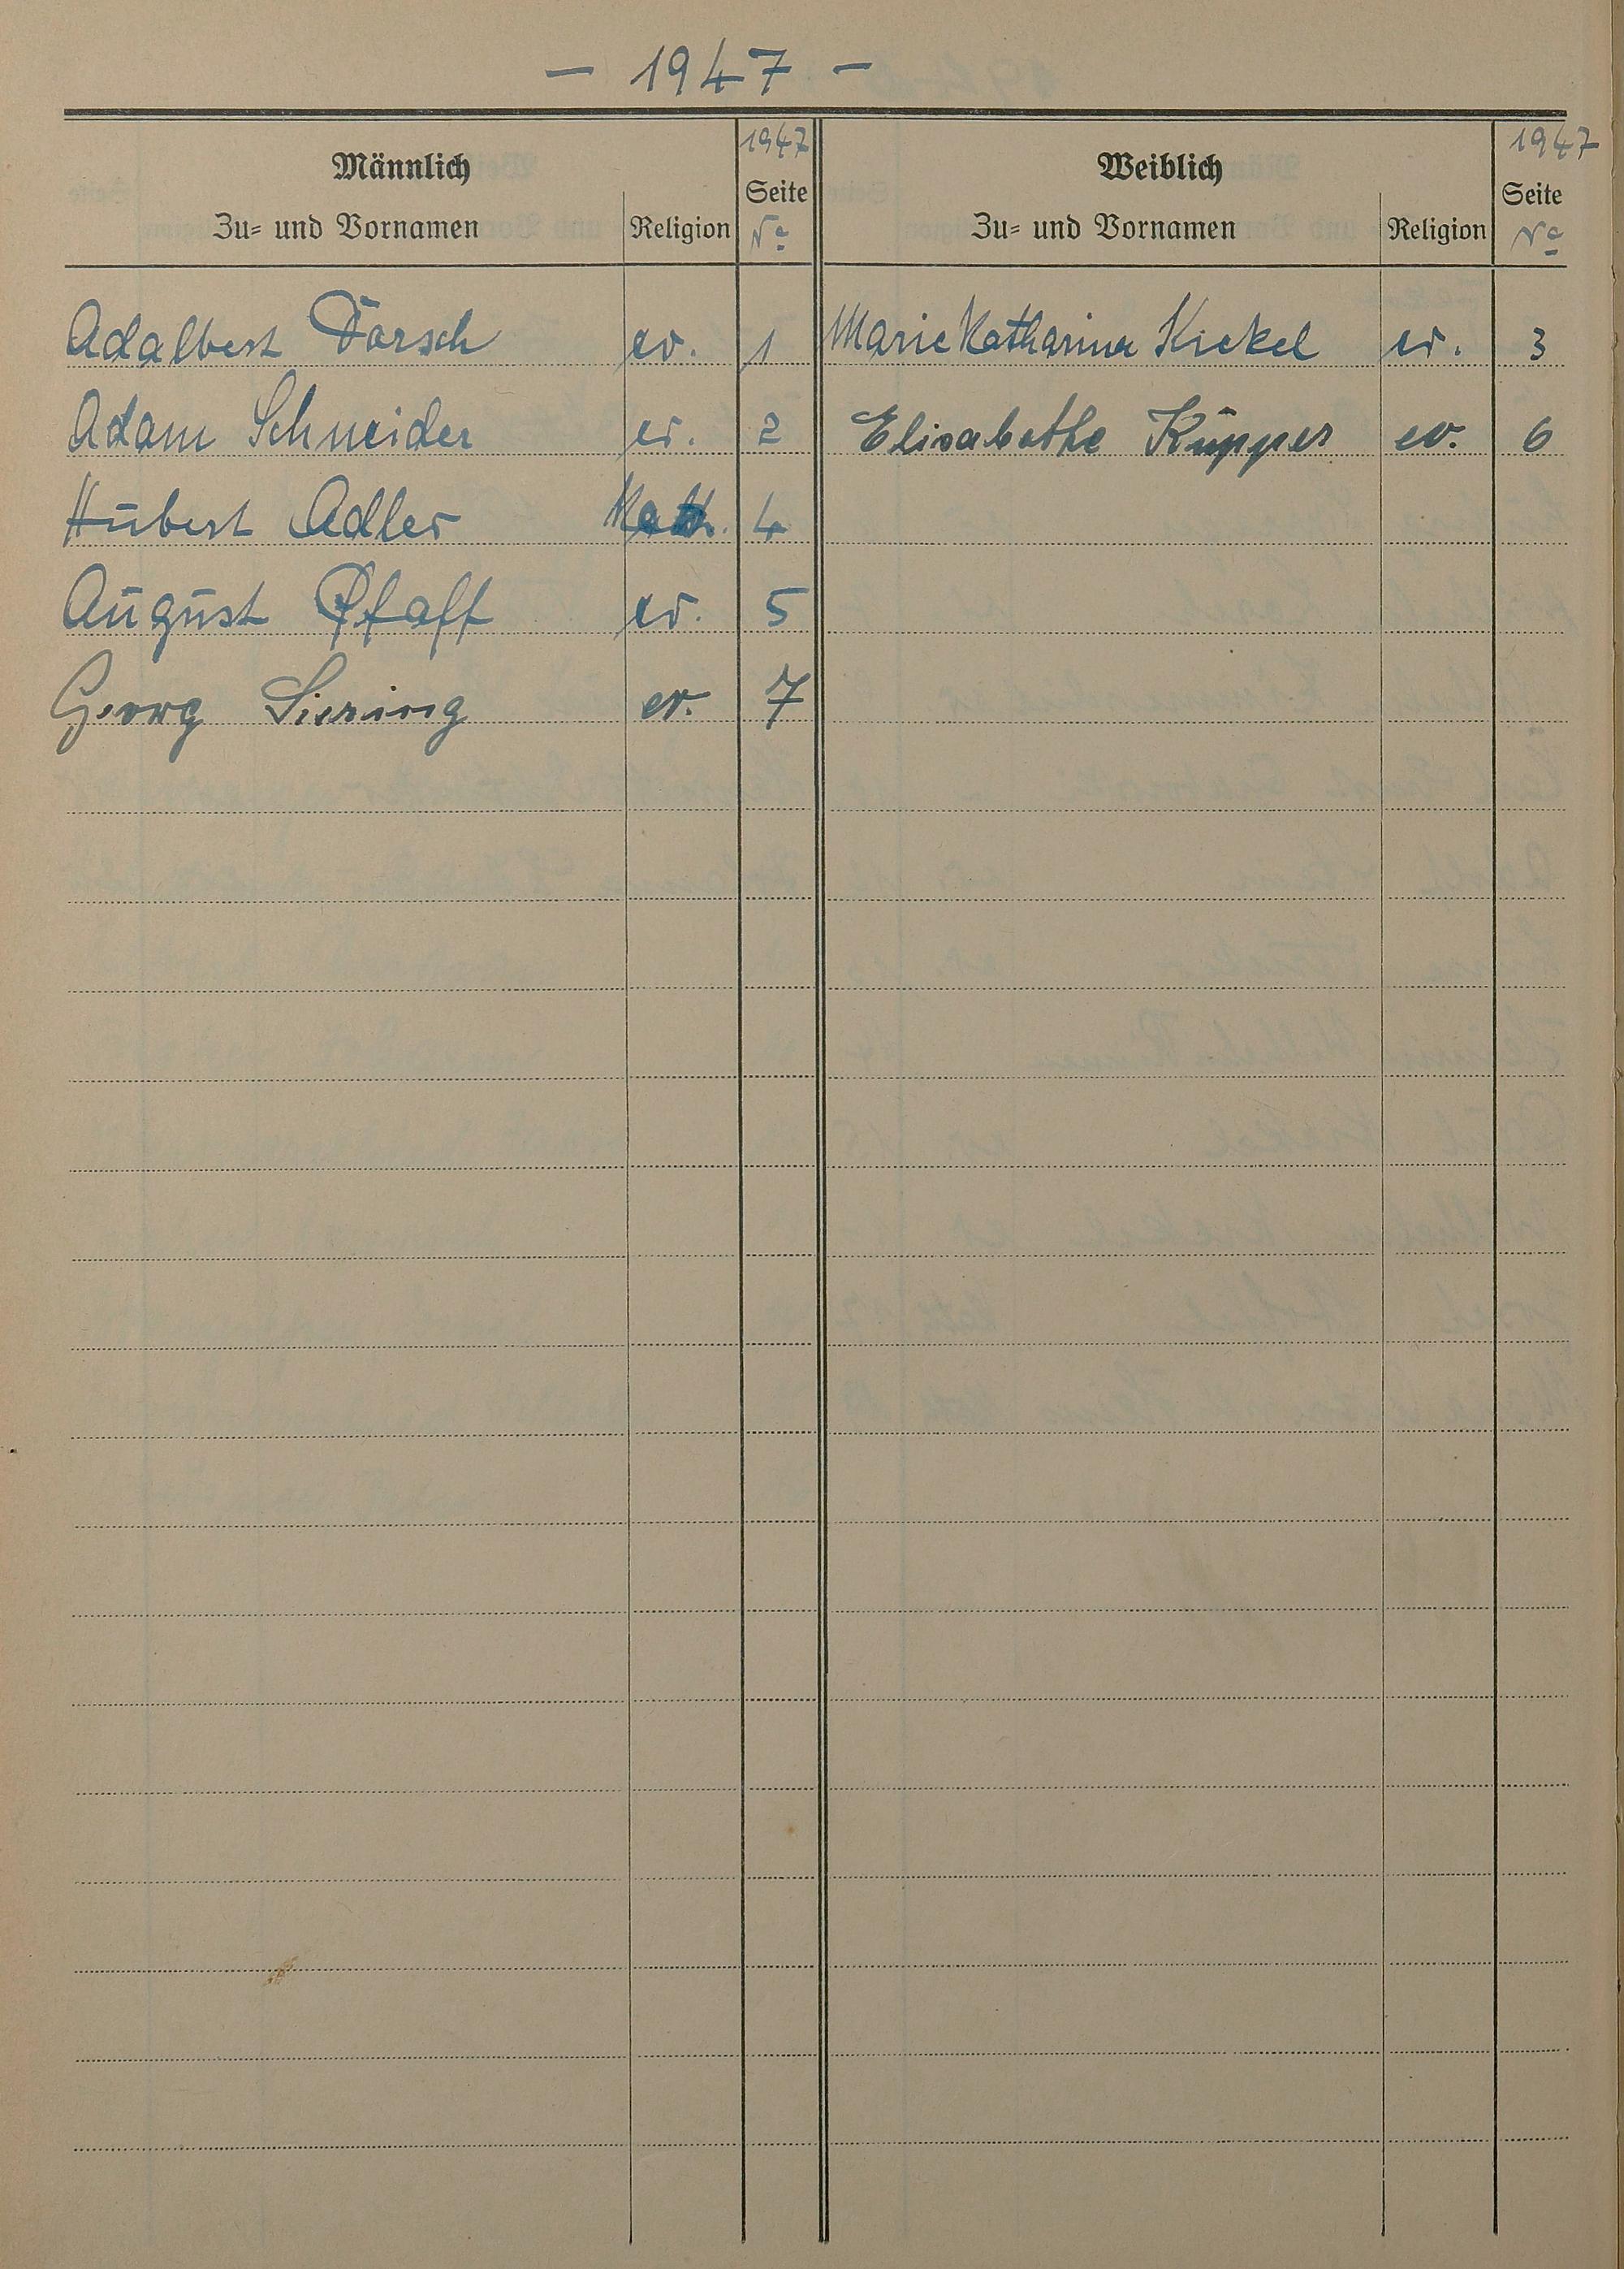 - 1947 -
Männlich 1947 Weiblich 1947
Zu- und Vornamen Religion Seite No Zu- und Vornamen Religion Seite No
Adalbert Dorsch ev. 1 Marie Katharina Krekel ev. 3
Adam Schneider ev. 2 Elisabethe Küpper ev. 6
Hubert Adler Kath. 4
August Pfaff ev. 5
Georg Siering ev. 7